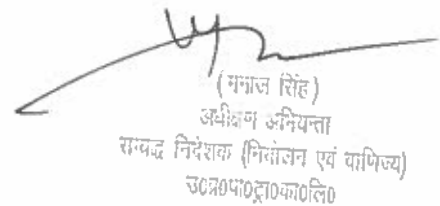 ( मनोज सिंह )
अधीक्षण अभियन्ता
सम्बद्ध निदेशक (नियोजन एवं वाणिज्य)
उ०प्र०पा०ट्रा०का०लि०